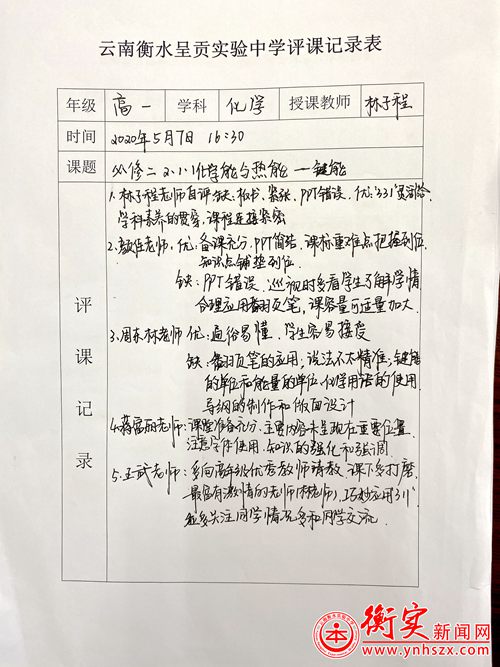 云南衡水呈贡实验中学评课记录表
年级 高一 学科 化学 授课教师 林子程
时间 2020年5月7日 16:30
课题 必修二 2.1.1化学能与热能 — 键能
评课记录
1.林子程老师自评 缺：板书、紧张、PPT错误。优：“331”贯彻
学科素养的贯穿，课程连接紧密
2.颜佳老师，优：备课充分，PPT简洁，课标重难点把握到位
知识点铺垫到位
缺：PPT错误，巡视时多看学生了解学情
合理应用翻页笔，课容量可适量加大。
3.周东林老师 优：通俗易懂，学生容易接受
缺：翻页笔的应用；说法不太精准；键能
的单位和能量的单位，化学用语的使用
导纲的制作和版面设计
4.蒋富丽老师：课堂准备充分，主要内容未呈现在重要位置
注意字体使用，知识的强化和强调
5.王武老师：多向高年级优秀教师请教，课下多打磨
最富有激情的老师(林老师)，巧妙应用311”
多关注同学情况多和同学交流
衡实新闻网
www.ynhszx.com